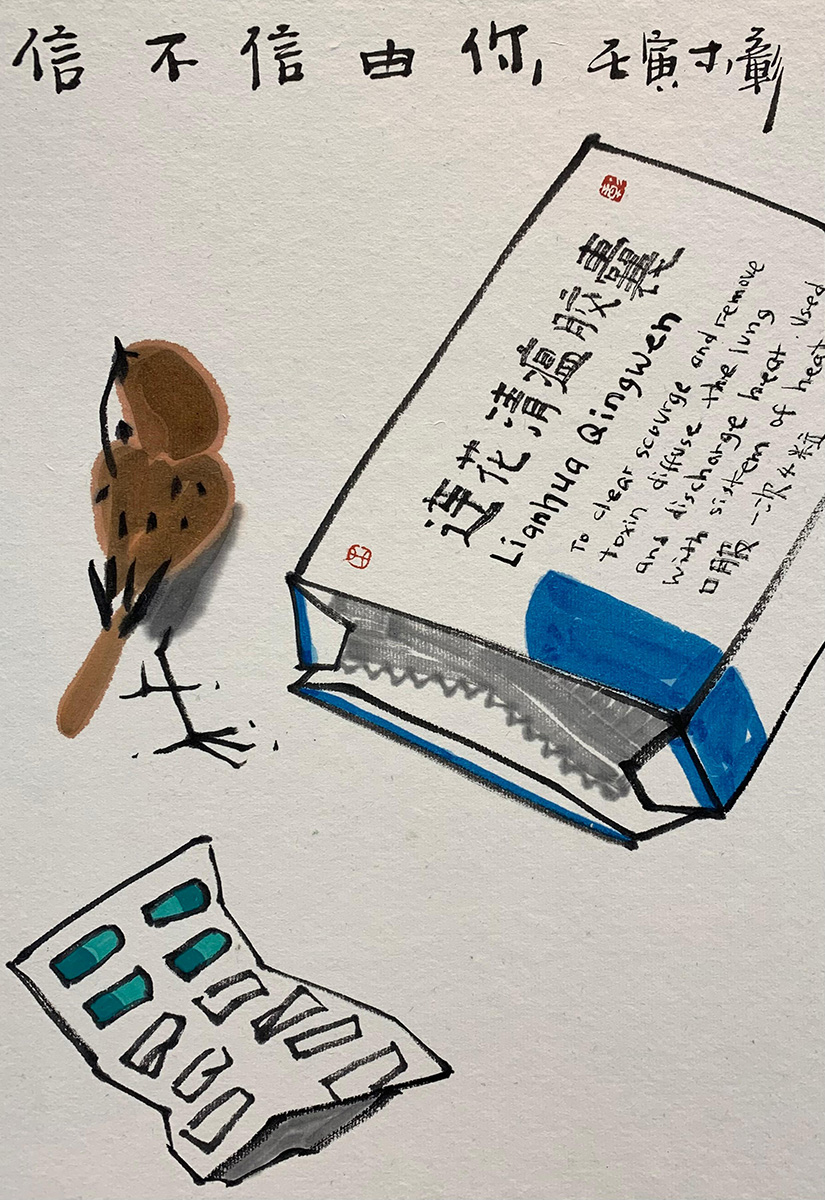 信不信由你, 壬寅
连花清瘟胶囊
Lianhua Qingwen
To clear scourge and remove
toxin diffuse the lung
and discharge heat. Used
with sistem of heat
口服 一次4粒